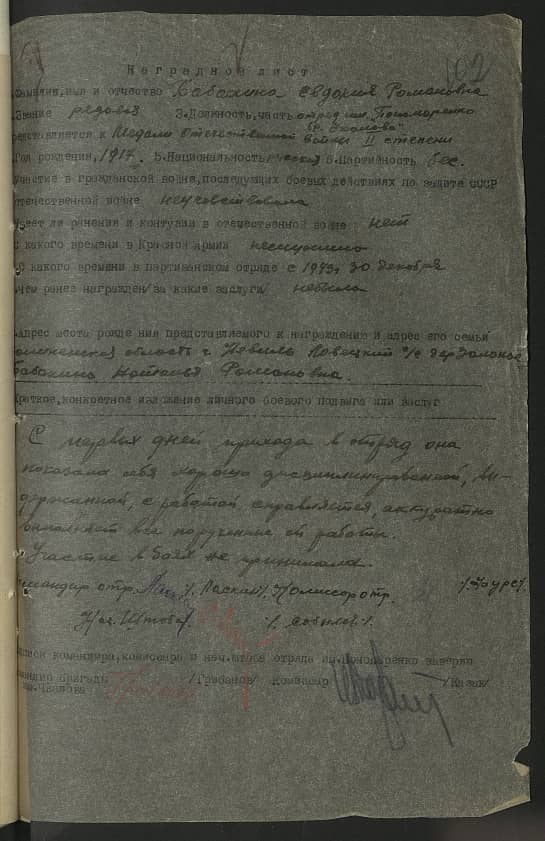 Наградной лист
Фамилия, имя и отчество Бабахина Евдокия Романовна
.Звание рядовая 3.Должность, часть отряд им. Пономаренко
редставляется к Медали Отечественной войны II степени
Год рождения, 1917. 5.Национальность русская 6.Партийность бес.
Участие в гражданской войне, последующих боевых действиях по защите СССР
отечественной войне неучаствовала
Имеет ли ранения и контузии в отечественной войне нет
с какого времени в Красной армии неслужила
С какого времени в партизанском отряде с 1943, 30 декабря
Чем ранее награжден/за какие заслуги/ небыла
.Адрес места рождения представляемого к награждению и адрес его семьи
область г. Невель с/с дер.
Романовна.
Краткое, конкретное изложение личного боевого подвига или заслуг
С первых дней прихода в отряд она
показала себя хорошо дисциплинированной, вы-
держанной, с работой справляется, аккуратно
выполняет все поручения от работы.
Участие в боях не принимала.
Командир отр. /. Ласкин/. Комиссар отр.
Нач. Штаба/.
подписи командира, комиссара и нач.штаба отряда им.Пономаренко заверяю
командир бригады /Грабанов/ Комиссар /Казак/
им.Чкалова